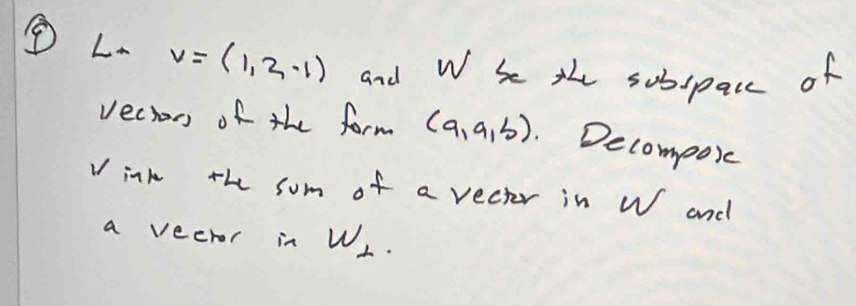 ① Let v = (1, 2, -1) and W be the subspace of
vectors of the form (a, a, b). Decompose
v into the sum of a vector in W and
a vector in W⊥.